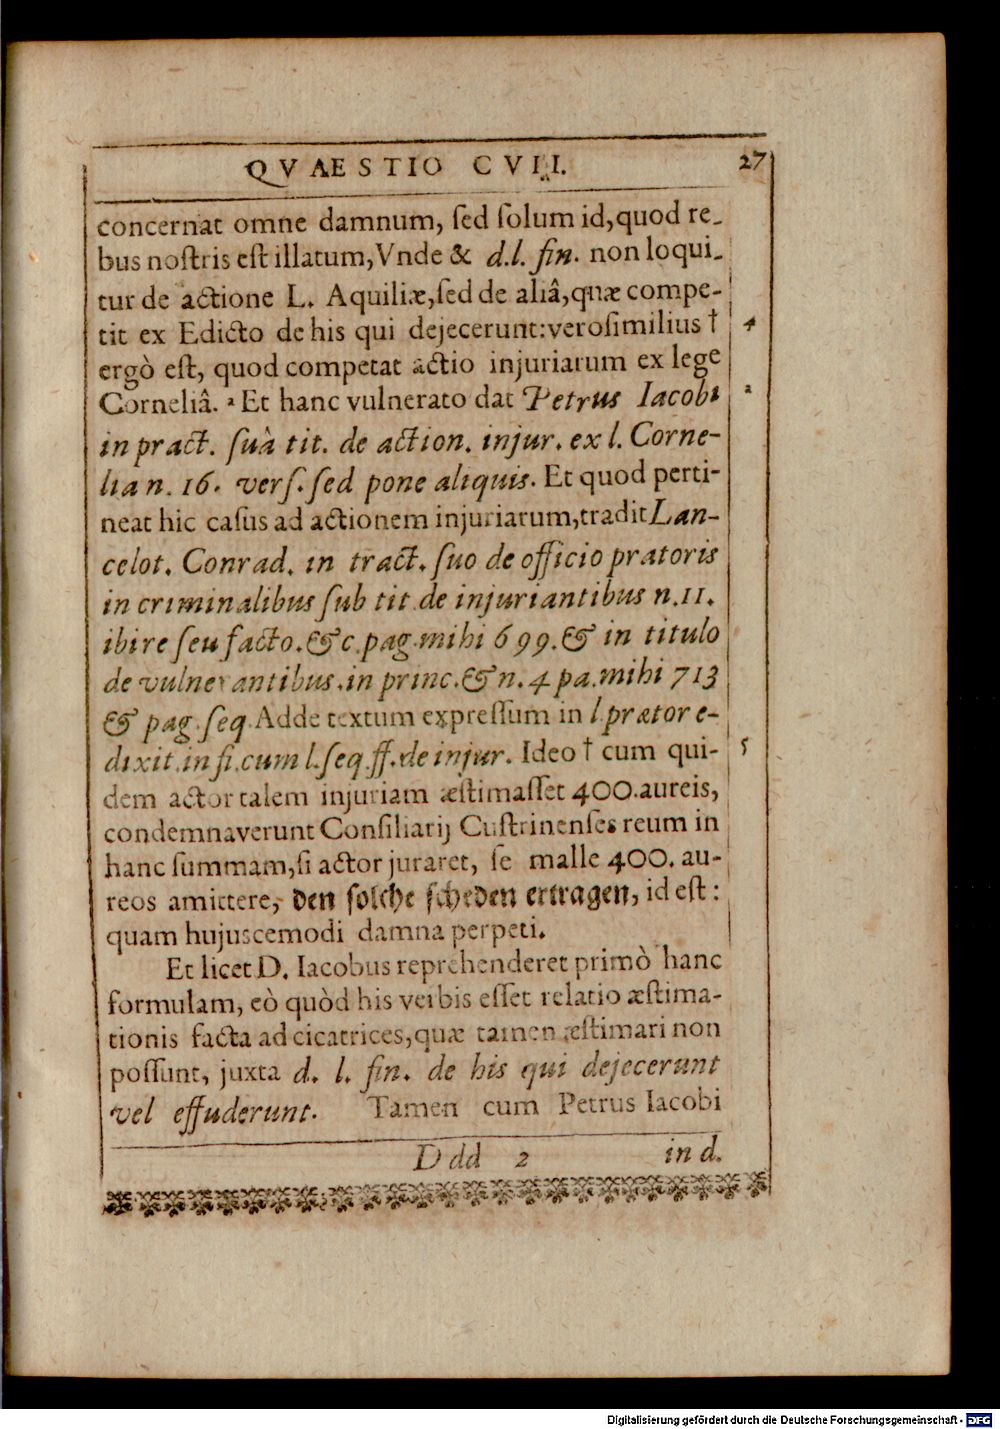 QVAESTIO CVII. 27
concernat omne damnum, ſed ſolum id, quod re-
bus noſtris eſt illatum, Vnde & d.l. fin. non loqui-
tur de actione L. Aquiliæ, ſed de aliâ, quæ compe-
tit ex Edicto de his qui dejecerunt: veroſimilius † 4
ergò eſt, quod competat actio injuriarum ex lege
Corneliâ. ² Et hanc vulnerato dat Petrus Iacobi ²
in pract. ſuâ tit. de action. injur. ex l. Corne-
lia n. 16. verſ. ſed pone aliquis. Et quod perti-
neat hic caſus ad actionem injuriarum, tradit Lan-
celot. Conrad. in tract. ſuo de officio pratoris
in criminalibus ſub tit. de injuriantibus n. 11.
ibi re ſeu facto. &c. pag. mihi 699. & in titulo
de vulnerantibus. in princ. & n. 4 pa. mihi 713
& pag. ſeq. Adde textum expreſſum in l. prætor e-
dixit. in fi. cum l. ſeq. ff. de injur. Ideo † cum qui- 5
dem actor talem injuriam æſtimaſſet 400. aureis,
condemnaverunt Conſiliarij Cuſtrinenſes reum in
hanc ſummam, ſi actor juraret, ſe malle 400. au-
reos amittere, den ſolche ſcheden ertragen, id eſt:
quam hujuscemodi damna perpeti.
Et licet D. Iacobus reprehenderet primò hanc
formulam, eò quòd his verbis eſſet relatio æſtima-
tionis facta ad cicatrices, quæ tamen æſtimari non
poſſunt, juxta d. l. fin. de his qui dejecerunt
vel effuderunt. Tamen cum Petrus Iacobi
Ddd 2 in d.
Digitalisierung gefördert durch die Deutsche Forschungsgemeinschaft - DFG